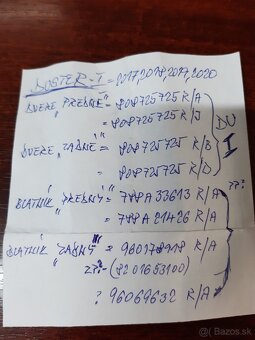 DUSTER-I = 2017,2018,2019,2020
DVERE PREDNÉ = 808725725 R/A
" = 808725725 R/J
DU
I
DVERE ZADNÉ = 808725725 R/B
" = 808725725 R/D
BLATNIK PREDNÝ = 788A33613 R/A
???
" = 788A21426 R/A
BLATNIK ZADNÝ = 960178918 R/A
27?-(8201653100)
? 96069632 R/A
bazos.sk